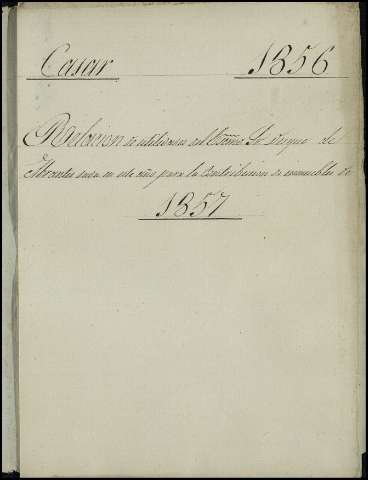 Casar 1856
Relacion de utilidades del Excmo Sr Duque de
Abrantes dada en este año para la Contribucion de inmuebles de
1857